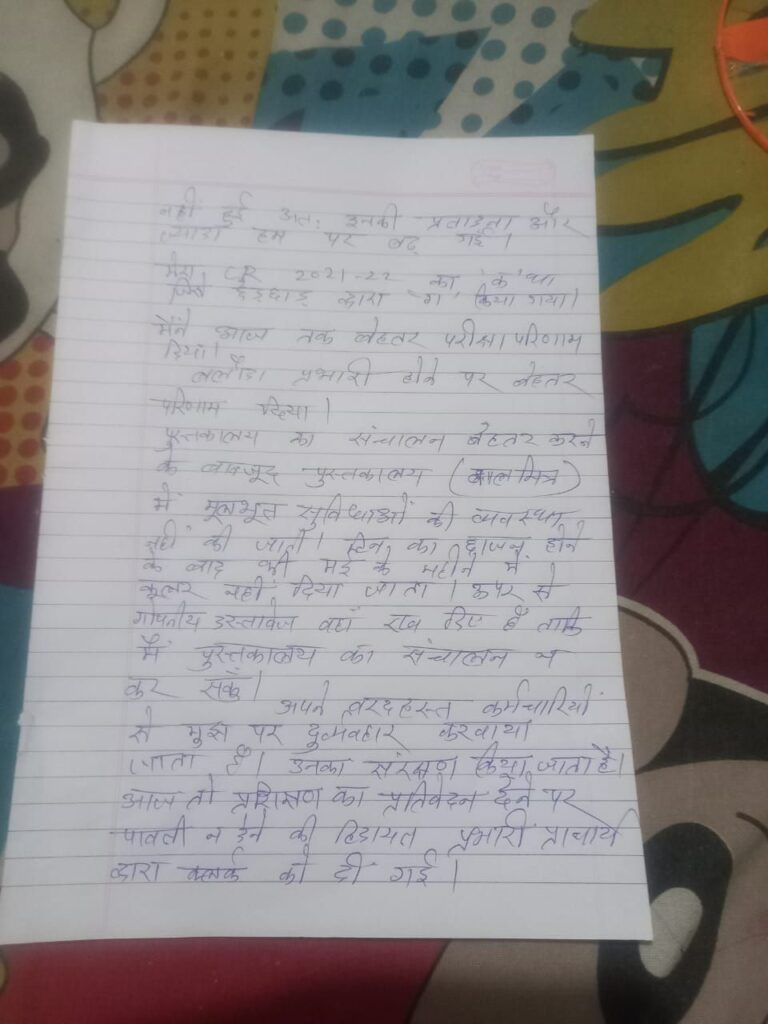 नहीं हुई अतः इनकी प्रताड़ना और
ज्यादा हम पर बढ़ गई।
मेरा CR 2021-22 का 'क' था
जिसे छेड़छाड़ द्वारा 'ग' किया गया।
मैंने आज तक बेहतर परीक्षा परिणाम
दिया।
प्रभारी होने पर बेहतर
परिणाम दिया।
पुस्तकालय का संचालन बेहतर करने
के बावजूद पुस्तकालय (बालमित्र)
में मूलभूत सुविधाओं की व्यवस्था
नहीं की जाती। टिन का छाजन होने
के बाद भी मई के महीने में
कूलर नहीं दिया जाता। ऊपर से
गोपनीय दस्तावेज वहाँ रख दिए हैं ताकि
मैं पुस्तकालय का संचालन न
कर सकूँ।
अपने वरदहस्त कर्मचारियों
से मुझ पर दुर्व्यवहार करवाया
जाता है। उनका संरक्षण किया जाता है।
आज तो प्रशिक्षण का प्रतिवेदन देने पर
पावती न देने की हिदायत प्रभारी प्राचार्य
द्वारा क्लर्क को दी गई।